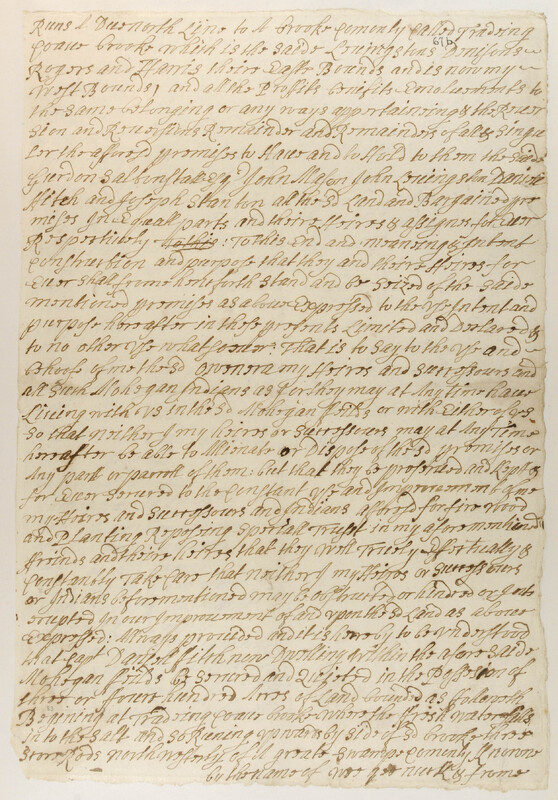 Runs A Due north Line to A brooke comonly Called Trading
67b
Coave brooke which is the saide Levingstons Denisons
Rogers and Harris theire East Bounds and is now my
West Bounds, and all the Profits benifits Emoluements to
the same belonging or any ways appertaineing & the Rever
sion and Reversions Remainder and Remainders of all & singu
ler the aforesd premises to Have and to Hold to them the saide
Gurdon Saltonstall Esq John Mason John Levingston Daniel
Fitch and Joseph Stanton all the sd Land and Bargained pre
mises In Equall parts and theire Heires & assignes for Ever
Respectively to this End and meaning & Intent
Construction and purpose that they and theire Heires for
Ever shall frome henceforth stand and be seized of the saide
mentioned premises as above Expressed to the Use Intent and
purpose hereafter in these presents Limited and Declared &
to no other Use whatsoever: That is to say to the Use and
behoofe of me the sd Oweneca my Heires and Successours and
all such Mohegan Indians as for they may at Any time have
Liveing with us in the sd Mohegan feilds or with Either of us
so that neither I my heires or Successours may at Any time
hereafter be able to Allienate or Dispose of the sd premises or
Any part or parcell of them: but that they be preserved and kept
for Ever secured to the Constant Use and Improvement of me
my Heires and Successours and Indians aforesd for fire wood
and Planting Reposing Speciall Trust in my aforementioned
friends and theire heires that they will Truely Effectually &
Constantly Take Care that neither I my Heires or Successours
or Indians beforementioned may be obstructed or hindred or
erupted in our Improvement of and upon the sd Land as above
Expressed: Allways provided and it is hereby to be understood
that Capt Daniell Fitch now Dwelling within the afore saide
Mohegan feilds be secured and Quieted in the Possesion of
three or foure hundred Acres of Land bounded as followeth
Begining at Trading coave brooke where the fresh water falls
in to the salt and so Runing upwards by side of sd brooke three
score Rods north westerly of A great swampe comonly Knowne
by the name of & frome